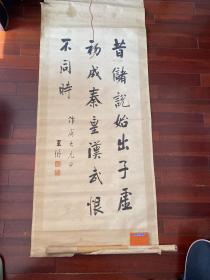 昔儲說始出子虛
初成秦皇漢武恨
不同時